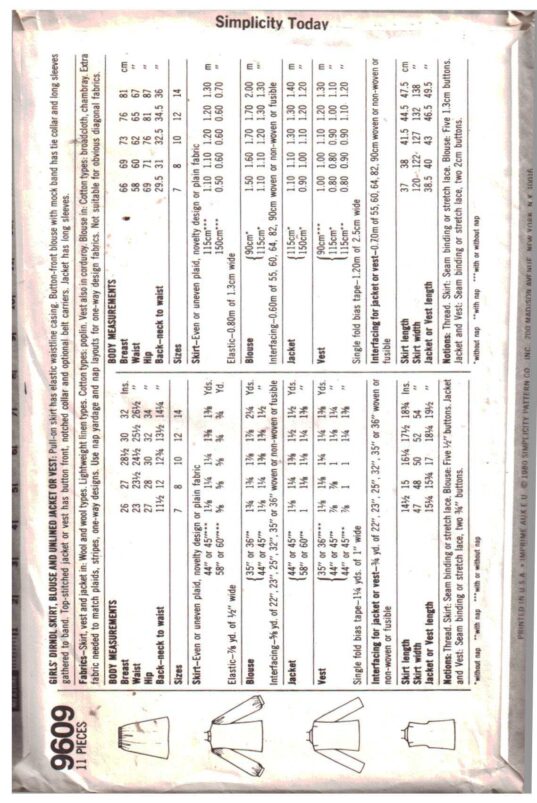 Simplicity Today
9609
11 PIECES
GIRLS' DIRNDL SKIRT, BLOUSE AND UNLINED JACKET OR VEST: Pull-on skirt has elastic waistline casing. Button-front blouse with mock band has tie collar and long sleeves
gathered to band. Top-stitched jacket or vest has button front, notched collar and optional belt carriers. Jacket has long sleeves.
Fabrics—Skirt, vest and jacket in: Wool and wool types. Lightweight linen types. Cotton types: poplin. Vest also in corduroy. Blouse in: Cotton types: broadcloth, chambray. Extra
fabric needed to match plaids, stripes, one-way designs. Use nap yardage and nap layouts for one-way design fabrics. Not suitable for obvious diagonal fabrics.
BODY MEASUREMENTS
Breast 26 27 28½ 30 32 Ins.
Waist 23 23½ 24½ 25½ 26½ "
Hip 27 28 30 32 34 "
Back—neck to waist 11½ 12 12¾ 13½ 14¼ "
Sizes 7 8 10 12 14
Skirt—Even or uneven plaid, novelty design or plain fabric
44" or 45"*** 1⅛ 1¼ 1¼ 1⅜ 1⅜ Yds.
58" or 60"*** ⅝ ⅝ ⅝ ¾ ¾ Yd.
Elastic—⅞ yd. of ½" wide
Blouse
35" or 36"* 1¾ 1¾ 1⅞ 1⅞ 2¼ Yds.
44" or 45"** 1⅛ 1¼ 1⅜ 1⅜ 1½ "
Interfacing—⅝ yd. of 22", 23", 25", 32", 35" or 36" woven or non-woven or fusible
Jacket
44" or 45"** 1⅛ 1¼ 1⅜ 1½ 1½ Yds.
Vest
Single fold bias tape—1¼ yds. of 1" wide
Interfacing for jacket or vest—¾ yd. of 22", 23", 25", 32", 35" or 36" woven or
non-woven or fusible
Skirt length 14½ 15 16¼ 17½ 18¾ Ins.
Skirt width 47 48 50 52 54 "
Jacket or Vest length 15¼ 15¾ 17 18¼ 19½ "
Notions: Thread. Skirt: Seam binding or stretch lace. Blouse: Five ½" buttons. Jacket
and Vest: Seam binding or stretch lace, two ¾" buttons.
*without nap **with nap ***with or without nap
BODY MEASUREMENTS
Breast 66 69 73 76 81 cm
Waist 58 60 62 65 67 "
Hip 69 71 76 81 87 "
Back—neck to waist 29.5 31 32.5 34.5 36 "
Sizes 7 8 10 12 14
Skirt—Even or uneven plaid, novelty design or plain fabric
115cm*** 1.10 1.10 1.20 1.20 1.30 m
150cm*** 0.50 0.60 0.60 0.60 0.70 "
Elastic—0.80m of 1.3cm wide
Blouse
90cm* 1.50 1.60 1.70 1.70 2.00 m
115cm** 1.10 1.10 1.20 1.30 1.30 "
Interfacing—0.60m of 55, 60, 64, 82, 90cm woven or non-woven or fusible
Jacket
115cm** 1.10 1.10 1.30 1.30 1.40 m
150cm** 0.90 1.00 1.10 1.20 1.20 "
Vest
Single fold bias tape—1.20m of 2.5cm wide
Interfacing for jacket or vest—0.70m of 55, 60, 64, 82, 90cm woven or non-woven or
fusible
Skirt length 37 38 41.5 44.5 47.5 cm
Skirt width 120 122 127 132 138 "
Jacket or Vest length 38.5 40 43 46.5 49.5 "
Notions: Thread. Skirt: Seam binding or stretch lace. Blouse: Five 1.3cm buttons.
Jacket and Vest: Seam binding or stretch lace, two 2cm buttons.
*without nap **with nap ***with or without nap
PRINTED IN U.S.A. • IMPRIME AUX E.U. © 1980 SIMPLICITY PATTERN CO. INC. 200 MADISON AVENUE NEW YORK, N.Y. 10016